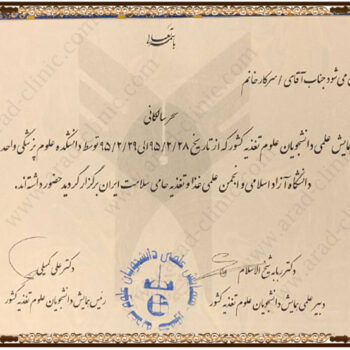 باسمه تعالی
می شود جناب آقای / سرکار خانم
سحر سالکانی
همایش علمی دانشجویان علوم تغذیه کشور که از تاریخ ۹۵/۲/۲۸ الی ۹۵/۲/۲۹ توسط دانشکده علوم پزشکی واحد
دانشگاه آزاد اسلامی و انجمن علمی غذا و تغذیه حامی سلامت ایران برگزار گردید حضور داشته‌اند.
دکتر ربابه شیخ الاسلام
دبیر علمی همایش دانشجویان علوم تغذیه کشور
دکتر علی کیلی
رئیس همایش دانشجویان علوم تغذیه کشور
www.arad-clinic.com